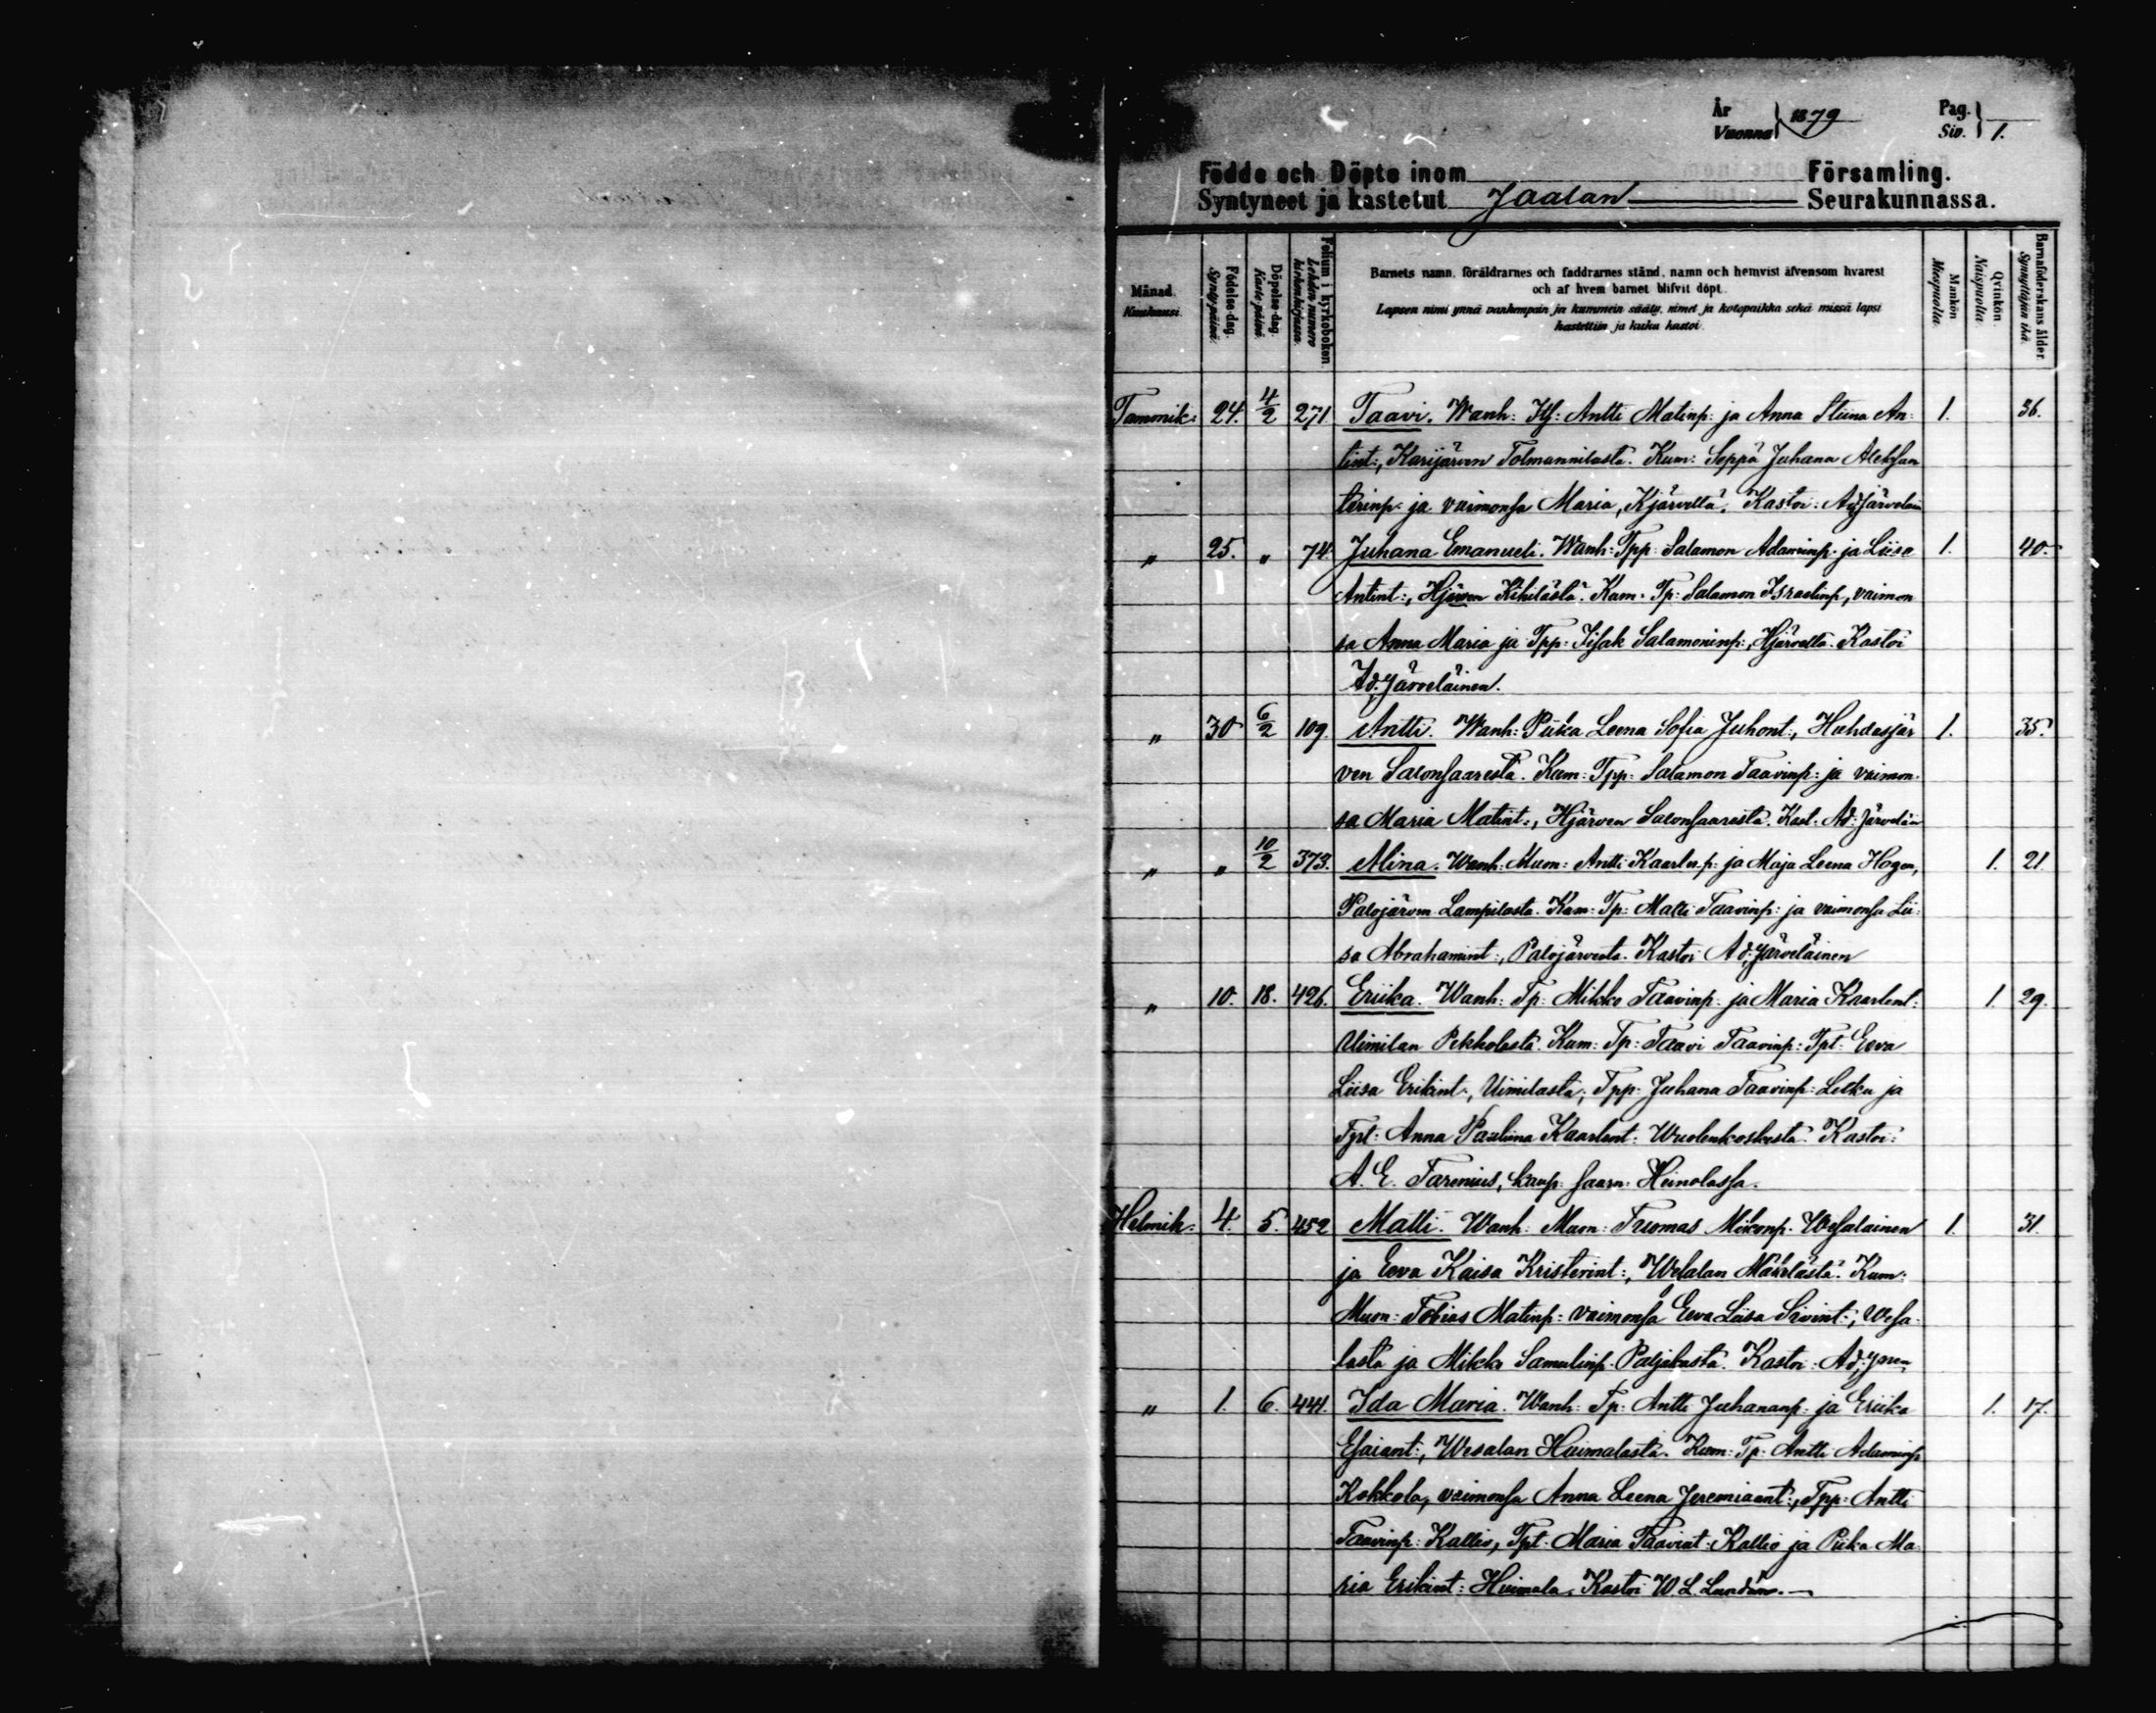 År
Vuonna } 1879
Pag.
Siv. } 1.
Födde och Döpte inom Församling.
Syntyneet ja kastetut Jaalan Seurakunnassa.
Månad.
Kuukausi.
Födelse-dag.
Syntypäivä.
Döpelse-dag.
Kaste päivä.
Folium i kyrkoboken
Lehden numero
kirkonkirjassa.
Barnets namn, föräldrarnes och faddrarnes stånd, namn och hemvist äfvensom hvarest
och af hvem barnet blifvit döpt.
Lapsen nimi ynnä vanhempain ja kummein sääty, nimet ja kotopaikka sekä missä lapsi
kastettiin ja kuka kastoi.
Mankön
Miespuolia.
Qvinkön.
Naispuolia.
Barnaföderskans ålder.
Synnyttäjän ikä.
Tammik: 24. 4/2 271 Taavi. Wanh: Antti Matinp: ja Anna Stiina An- 1. 36.
tint:, Karijärven Tolmannilasta. Kum: Seppä Juhana Aleksan
terinp: ja vaimonsa Maria, Kjärveltä. Kastoi: Ad. Järveläin
" 25. " 74. Juhana Emanueli. Wanh: Tpp: Salamon Adaminp: ja Liisa 1. 40.
Antint:, Hjärven Kihilästä. Kum: Tp: Salamon Israelinp:, vaimon
sa Anna Maria ja Tpp: Iisak Salamoninp:, Hjärveltä. Kastoi
Ad. Järveläinen.
" 30 6/2 109. Antti. Wanh: Piika Leena Sofia Juhont:, Huhdasjär 1. 35.
ven Salonsaaresta. Kum: Tpp: Salamon Taavinp: ja vaimon-
sa Maria Matint:, Hjärven Salonsaaresta. Kast. Ad: Järveläin
" " 10/2 373. Alina. Wanh: Muon: Antti Kaarlenp: ja Maja Leena Hagen, 1. 21.
Palojärven Lampilasta. Kum: Tp: Matti Taavinp: ja vaimonsa Lii-
sa Abrahamint:, Palojärvelta. Kastoi Ad. Järveläinen
" 10. 18. 426. Eriika. Wanh: Tp: Mikko Taavinp: ja Maria Kaarlent: 1. 29.
Uimilan Pekkolasta. Kum: Tp: Taavi Taavinp: Tpt: Eeva
Liisa Erikint:, Uimilasta; Tpp: Juhana Taavinp: Lelku ja
Tpt: Anna Pauliina Kaarlent: Wuolenkoskesta. Kastoi:
A. E. Farenius, kaup: saarn: Heinolassa.
Helmik: 4. 5. 452 Matti. Wanh: Muon: Tuomas Mikonp: Wesalainen 1. 31.
ja Eeva Kaisa Kristerint:, Wesalan Määtlästä. Kum:
Muon: Tobias Matinp: vaimonsa Eeva Liisa Sivint:, Wesa-
lasta ja Mikko Samulinp: Paljakasta. Kastoi: Ad. Jnen
" 1. 6. 444. Ida Maria. Wanh: Tp: Antti Juhananp: ja Eriika 1. 17.
Esaiant:, Wesalan Huimalasta. Kum: Tp: Antti Adaminp:
Kokkola, vaimonsa Anna Leena Jeremiaant:, Tpp: Antti
Taavinp: Kallio, Tpt: Maria Taavint: Kallio ja Piika Ma-
ria Erikint: Huimala. Kastoi W. L. Lundén.